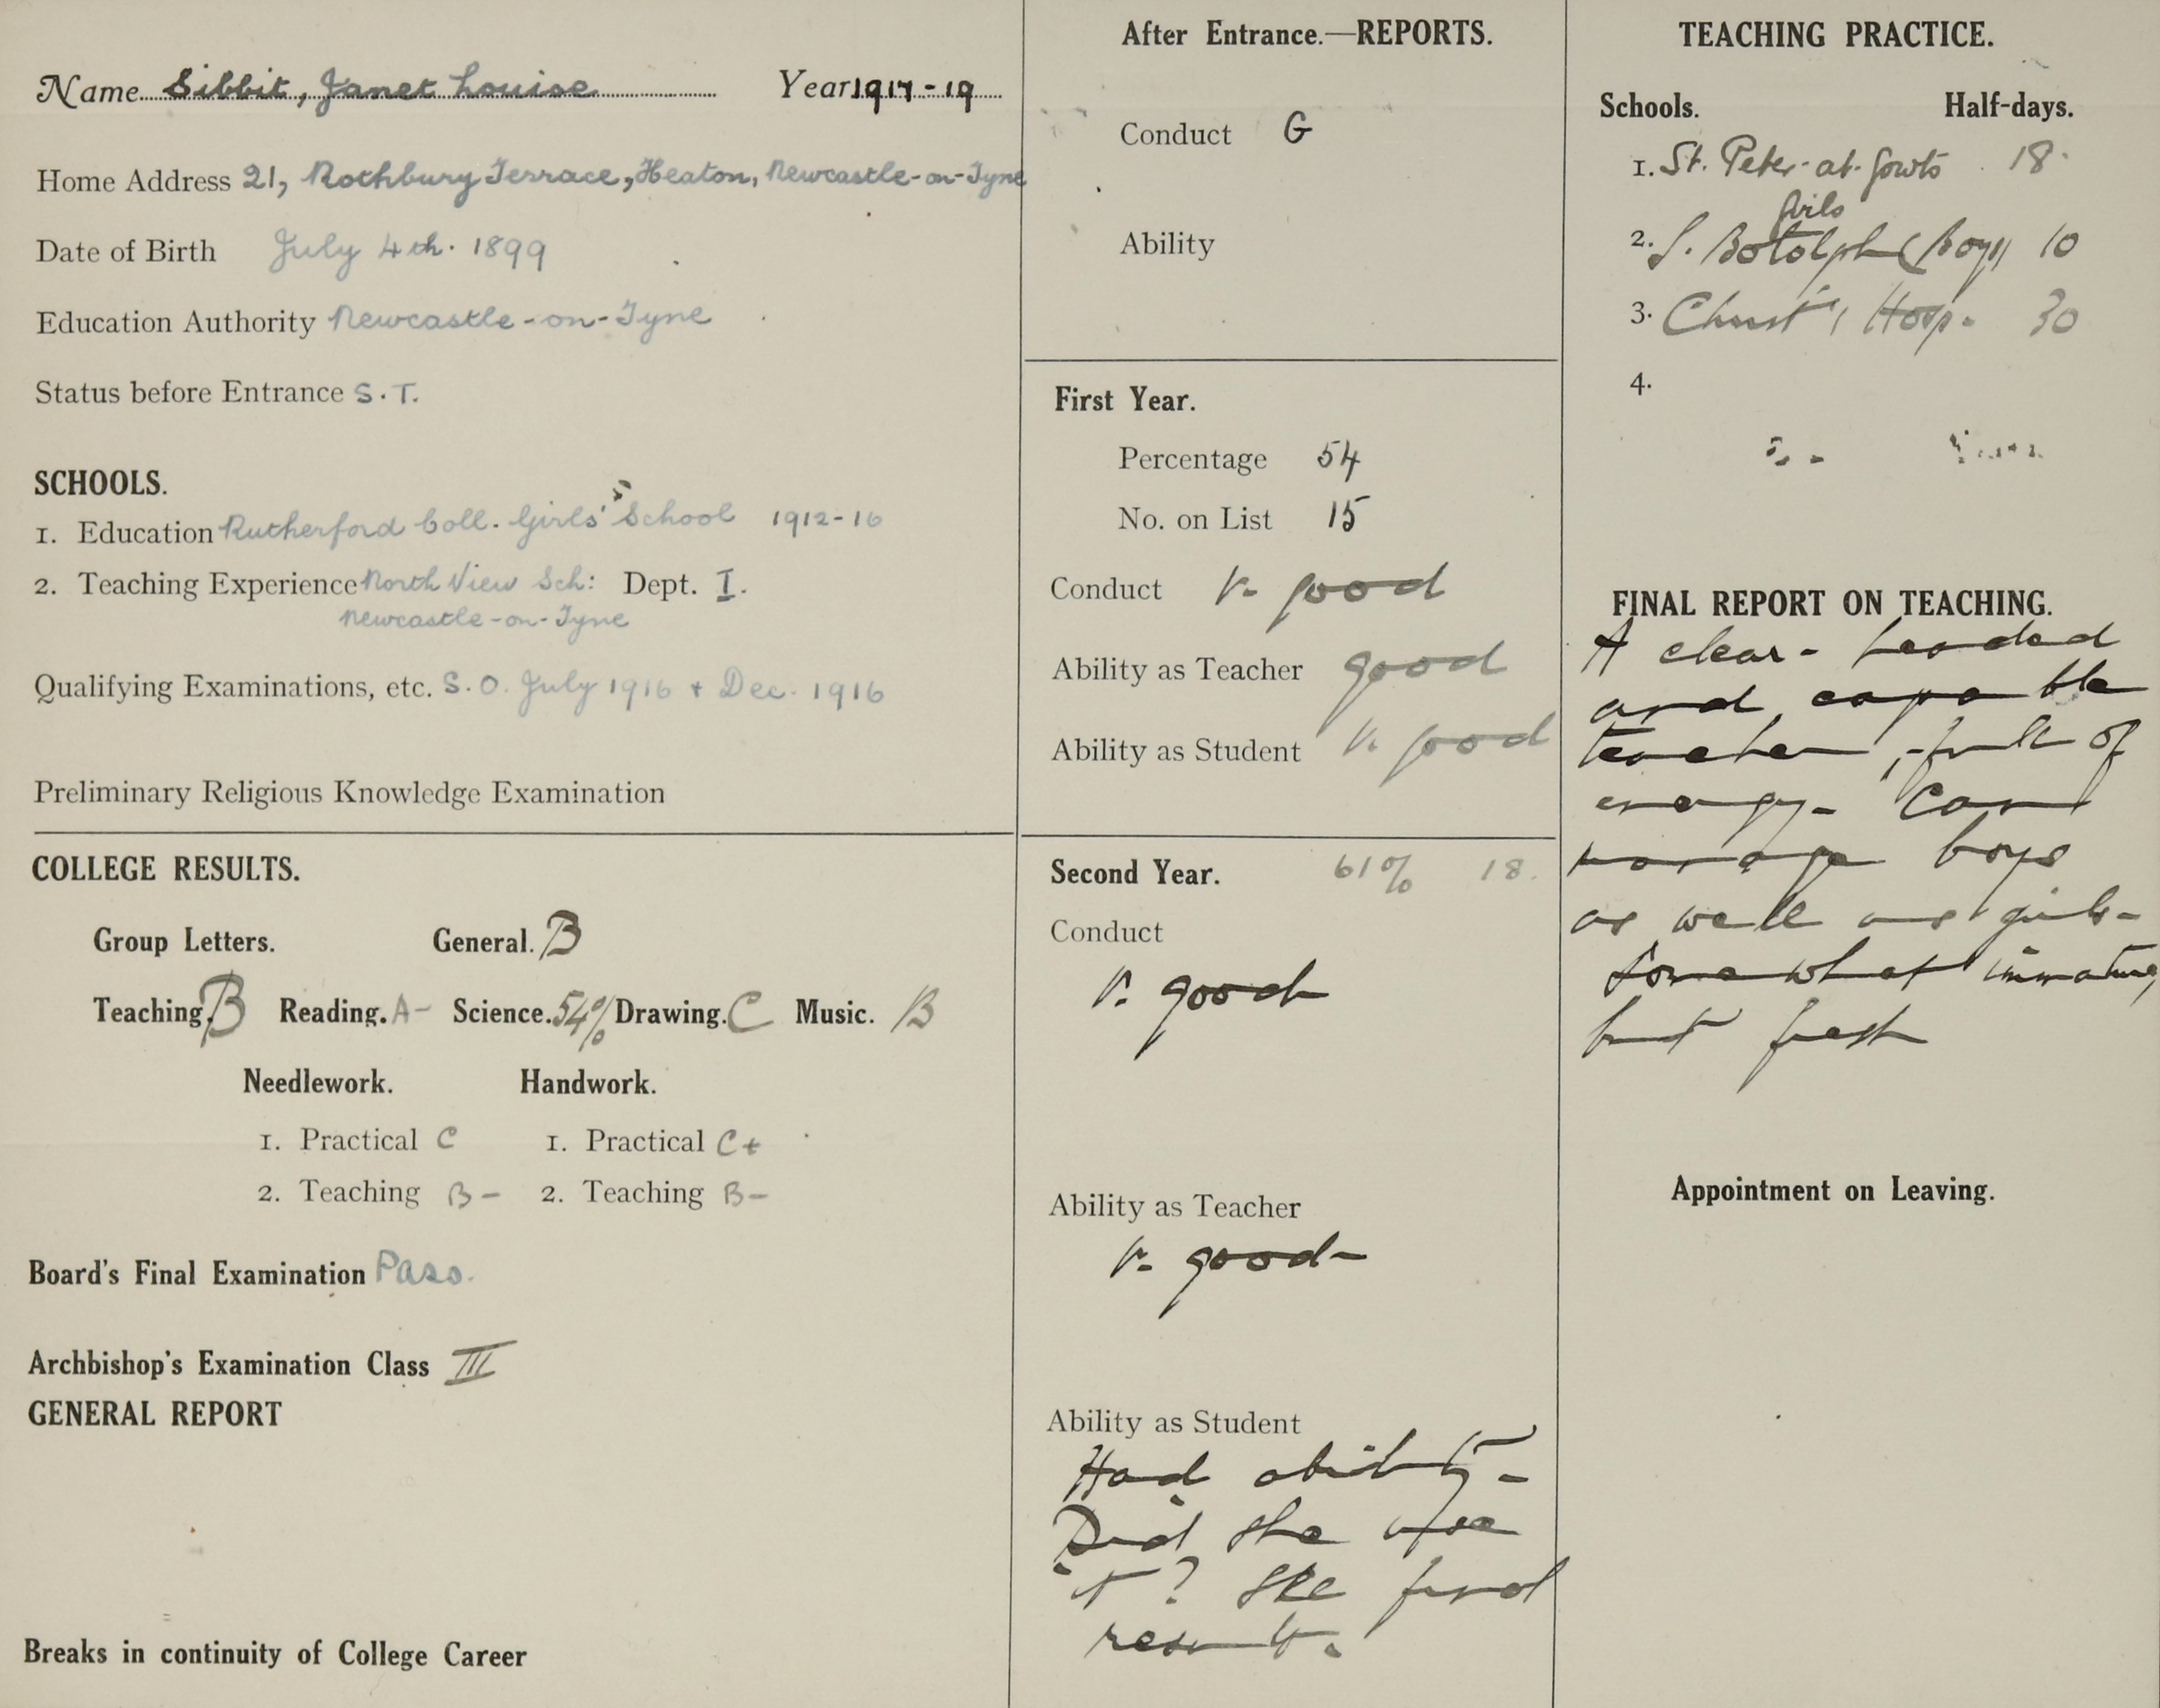 Name Sibbit, Janet Louise Year 1917-19
Home Address 21, Rothbury Terrace, Heaton, Newcastle-on-Tyne
Date of Birth July 4th. 1899
Education Authority Newcastle-on-Tyne
Status before Entrance S.T.
SCHOOLS.
1. Education Rutherford Coll. Girls' School 1912-16
2. Teaching Experience North View Sch: Dept. I.
Newcastle-on-Tyne
Qualifying Examinations, etc. S.O. July 1916 + Dec. 1916
Preliminary Religious Knowledge Examination
COLLEGE RESULTS.
Group Letters. General. B
Teaching. B Reading. A- Science. 54% Drawing. C Music. B
Needlework. Handwork.
1. Practical C 1. Practical C+
2. Teaching B- 2. Teaching B-
Board's Final Examination Pass.
Archbishop's Examination Class III
GENERAL REPORT
Breaks in continuity of College Career
After Entrance.—REPORTS.
Conduct G
Ability
First Year.
Percentage 54
No. on List 15
Conduct V. good
Ability as Teacher good
Ability as Student V. good
Second Year. 61% 18.
Conduct
V. good
Ability as Teacher
V. good-
Ability as Student
Had ability-
Did she use
it? See final
result.
TEACHING PRACTICE.
Schools. Half-days.
1. St. Peter-at-Gowts 18.
Girls
2. S. Botolph (Boys) 10
3. Christ's Hosp. 30
4.
FINAL REPORT ON TEACHING.
A clear-headed
and capable
teacher, full of
energy. Can
manage boys
as well as girls-
Somewhat immature,
but fresh
Appointment on Leaving.